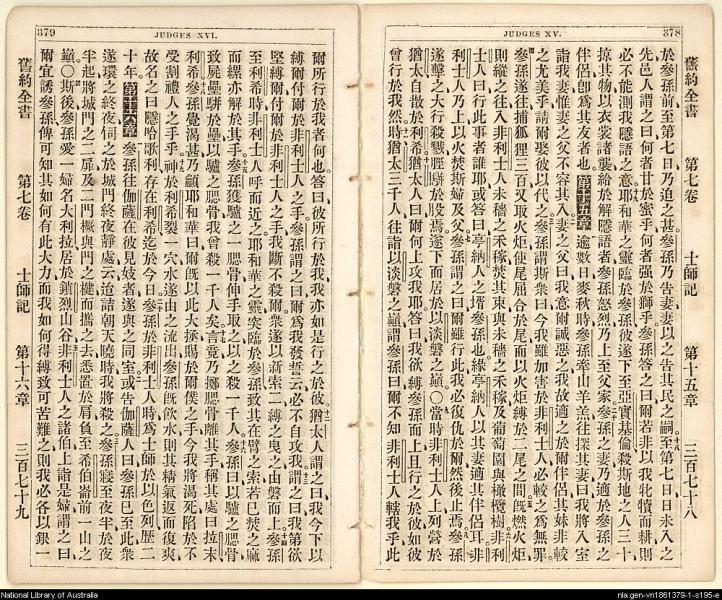 378
JUDGES XV.
舊約全書 第七卷 士師記 第十五章 三百七十八
於參孫前至第七日乃迫之甚參孫乃告妻妻以之告其民之嗣至第七日日未入之
先邑人謂之曰何者甘於蜜乎何者强於獅乎參孫答之曰爾若非以我牝犢而耕則
必不能測我隱語之意耶和華之靈臨於參孫彼遂下至亞實基倫殺斯地之人三十
掠其物以衣裳諸襲給於解隱語者參孫怒烈乃上至父家參孫之妻乃適於參孫之
伴侶卽爲其友者也第十五章 逾數日麥秋時參孫牽山羊羔往探其妻曰我將入室
詣我妻惟妻之父不容其入妻之父曰我意爾誠惡之我故適之於爾伴侶其妹非較
之尤美乎請爾娶彼以代之參孫謂斯衆曰今我雖加害於非利士人必較之爲無罪
參孫遂往捕狐狸三百又取火炬使尾屈合於尾而以火炬縛於二尾之間旣燃火炬
則縱之往入非利士人未穡之禾稼焚其束與未穡之禾稼及葡萄園與橄欖樹非利
士人曰行此事者誰耶或答曰亭納人之壻參孫也緣亭納人以其妻適其伴侶耳非
利士人乃上以火焚斯婦及父參孫謂之曰爾雖行此我必復仇於爾然後止焉參孫
遂擊之大行殺戮脛骿於股焉遂下而居於以淡磐之巓〇當時非利士人上列營於
猶太自散於利希猶太人曰爾何上攻我耶答曰我欲上縛參孫而上且行之於彼如彼
曾行於我然時猶太三千人往詣以淡磐之巓謂參孫曰爾不知非利士人轄我乎此
379
JUDGES XVI.
爾所行於我者何也答曰彼所行於我我亦如是行之於彼猶太人謂之曰我今下以
縛爾付爾於非利士人之手參孫謂之曰爾爲我發誓云必不自攻我謂之曰我第欲
堅縛爾付爾於非利士人之手我斷不殺爾衆遂以新索二縛之曳之由磐而上參孫
至利希時非利士人呼而近之耶和華之靈突臨於參孫致其在臂之索若已焚之麻
而縲亦解於其手參孫獲驢之一腮骨伸手取之以之殺一千人參孫曰以驢之腮骨
致屍壘骿於壘以驢之腮骨我曾殺一千人矣言竟乃擲腮骨離其手稱其處曰拉末
利希參孫覺渴甚乃顧耶和華曰爾旣以此大拯賜於爾僕之手今我將渴死陷於不
受割禮人之手乎神於利希裂一穴水遂由之流出參孫旣飲水則其精氣返而復爽
故名之曰隱哈歌利存在利希迄於今日參孫於非利士人時爲士師於以色列歷二
十年第十六章 參孫往伽薩在彼見妓者遂與之同室或告伽薩人曰參孫已至此衆
遂環之終夜伺之於城門終夜靜處云迨詰朝天曉時我將殺之參孫寢至夜半於夜
半起將城門之二扉及二門橛與門之楗而攜之去悉置於肩負至希伯崙前一山之
巓〇斯後參孫愛一婦名大利拉居於鎖烈山谷非利士人之諸伯上詣是婦謂之曰
爾宜誘參孫俾可知其如何有此大力而我如何得縛致可苦難之則我必各以銀一
舊約全書 第七卷 士師記 第十六章 三百七十九
National Library of Australia
nla.gen-vn1861379-1-s195-e